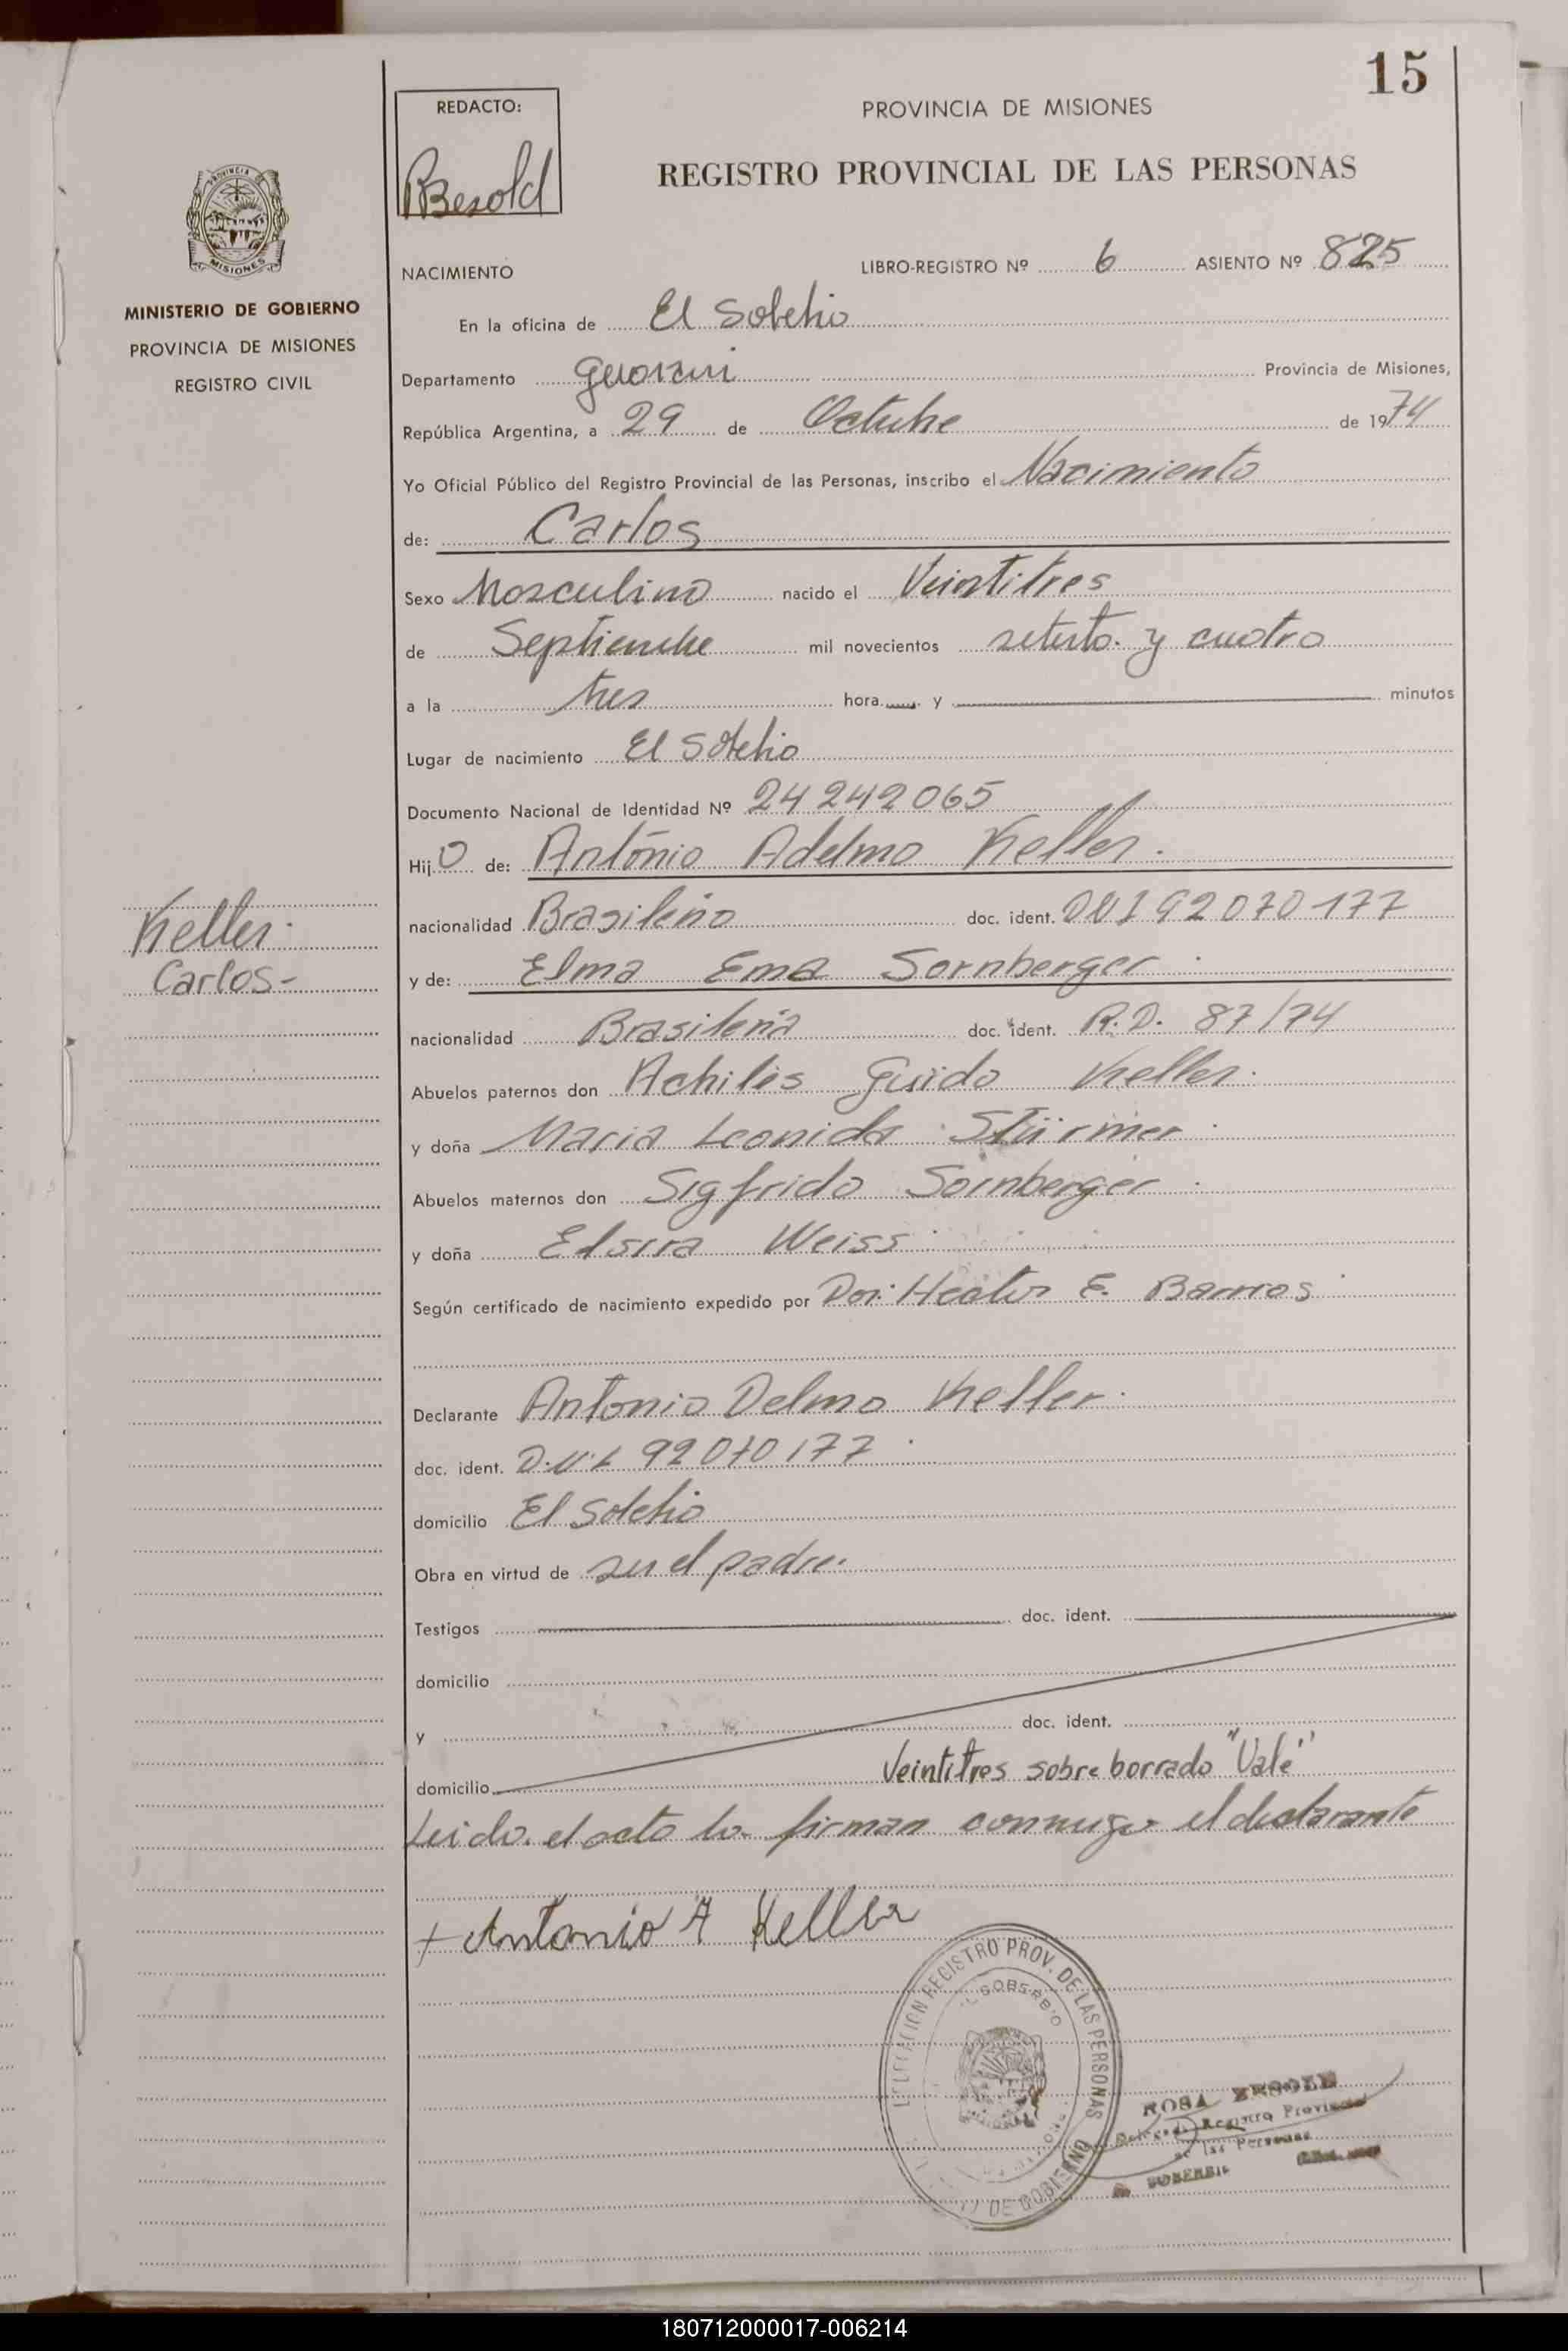 15
REDACTO:
RBesold
PROVINCIA DE MISIONES
REGISTRO PROVINCIAL DE LAS PERSONAS
PROVINCIA
MISIONES
MINISTERIO DE GOBIERNO
PROVINCIA DE MISIONES
REGISTRO CIVIL
NACIMIENTO LIBRO-REGISTRO Nº 6 ASIENTO Nº 825
En la oficina de El Soberbio
Departamento Guarani Provincia de Misiones,
República Argentina, a 29 de Octubre de 1974
Yo Oficial Público del Registro Provincial de las Personas, inscribo el Nacimiento
de: Carlos
Sexo Masculino nacido el Veintitres
de Septiembre mil novecientos setenta y cuatro
a la tres hora y minutos
Lugar de nacimiento El Soberbio
Documento Nacional de Identidad Nº 24242065
Hijo de: António Adelmo Keller.
Keller.
Carlos-
nacionalidad Brasileño doc. ident. DNI 92070177
y de: Elma Ema Sornberger.
nacionalidad Brasileña doc. ident. R.D. 87/74
Abuelos paternos don Achiles Guido Keller.
y doña Maria Leonida Stürmer.
Abuelos maternos don Sigfrido Sornberger.
y doña Elsira Weiss.
Según certificado de nacimiento expedido por Dor: Hector E. Barrios.
Declarante Antonio Delmo Keller.
doc. ident. D.N.I. 92070177.
domicilio El Soberbio
Obra en virtud de ser el padre.
Testigos doc. ident.
domicilio
y doc. ident.
domicilio Veintitres sobre borrado "Vale"
Leido el acto lo firman conmigo el declarante
+ Antonio A Keller
REGISTRO PROV. DE LAS PERSONAS
DE GOBIERNO
ROSA
Registro Provincial
de las Personas
180712000017-006214